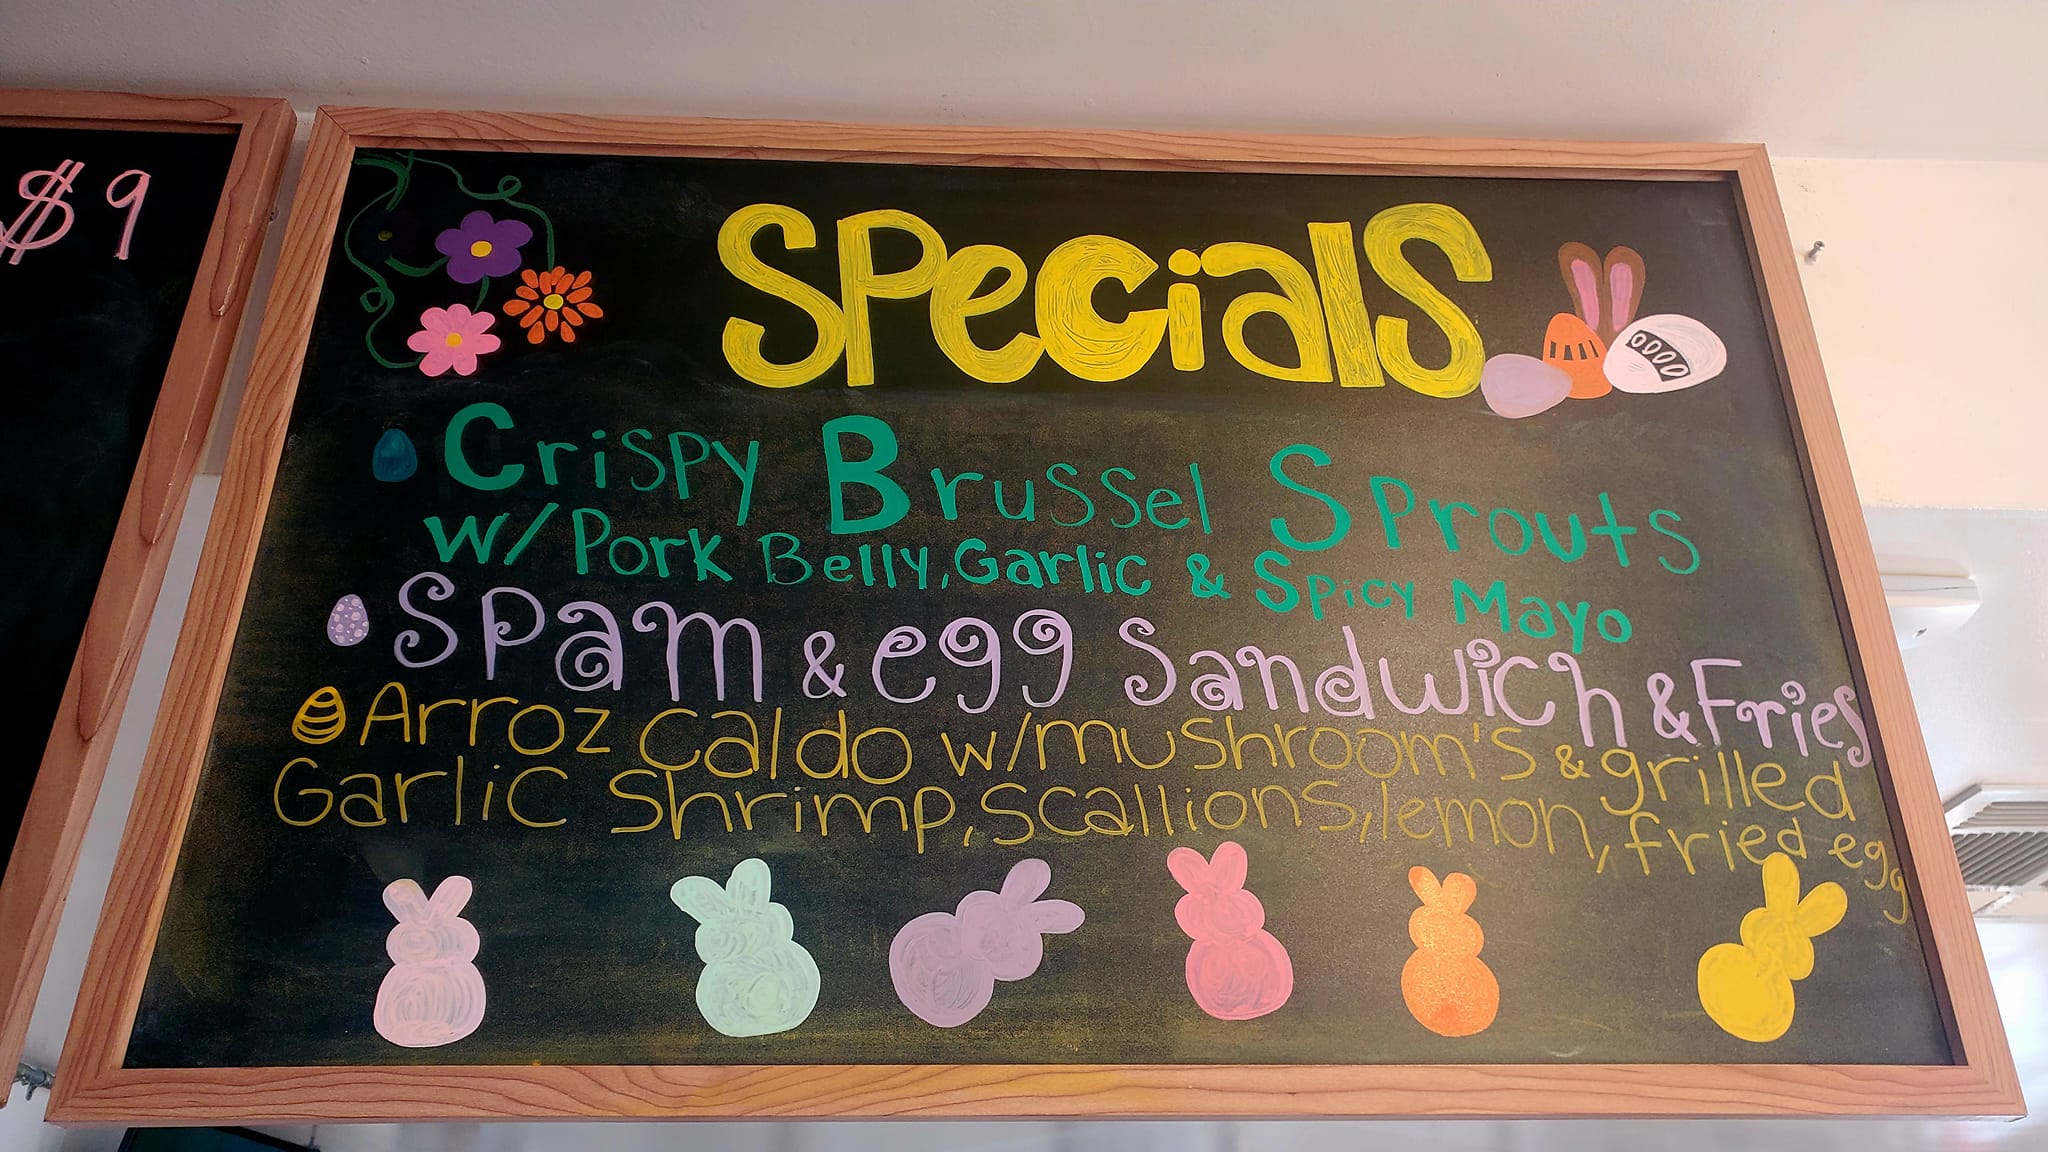 $9
Specials
Crispy Brussel Sprouts
w/ Pork Belly, Garlic & Spicy Mayo
Spam & egg Sandwich & Fries
Arroz caldo w/mushroom's & grilled
Garlic shrimp, scallions, lemon, fried egg